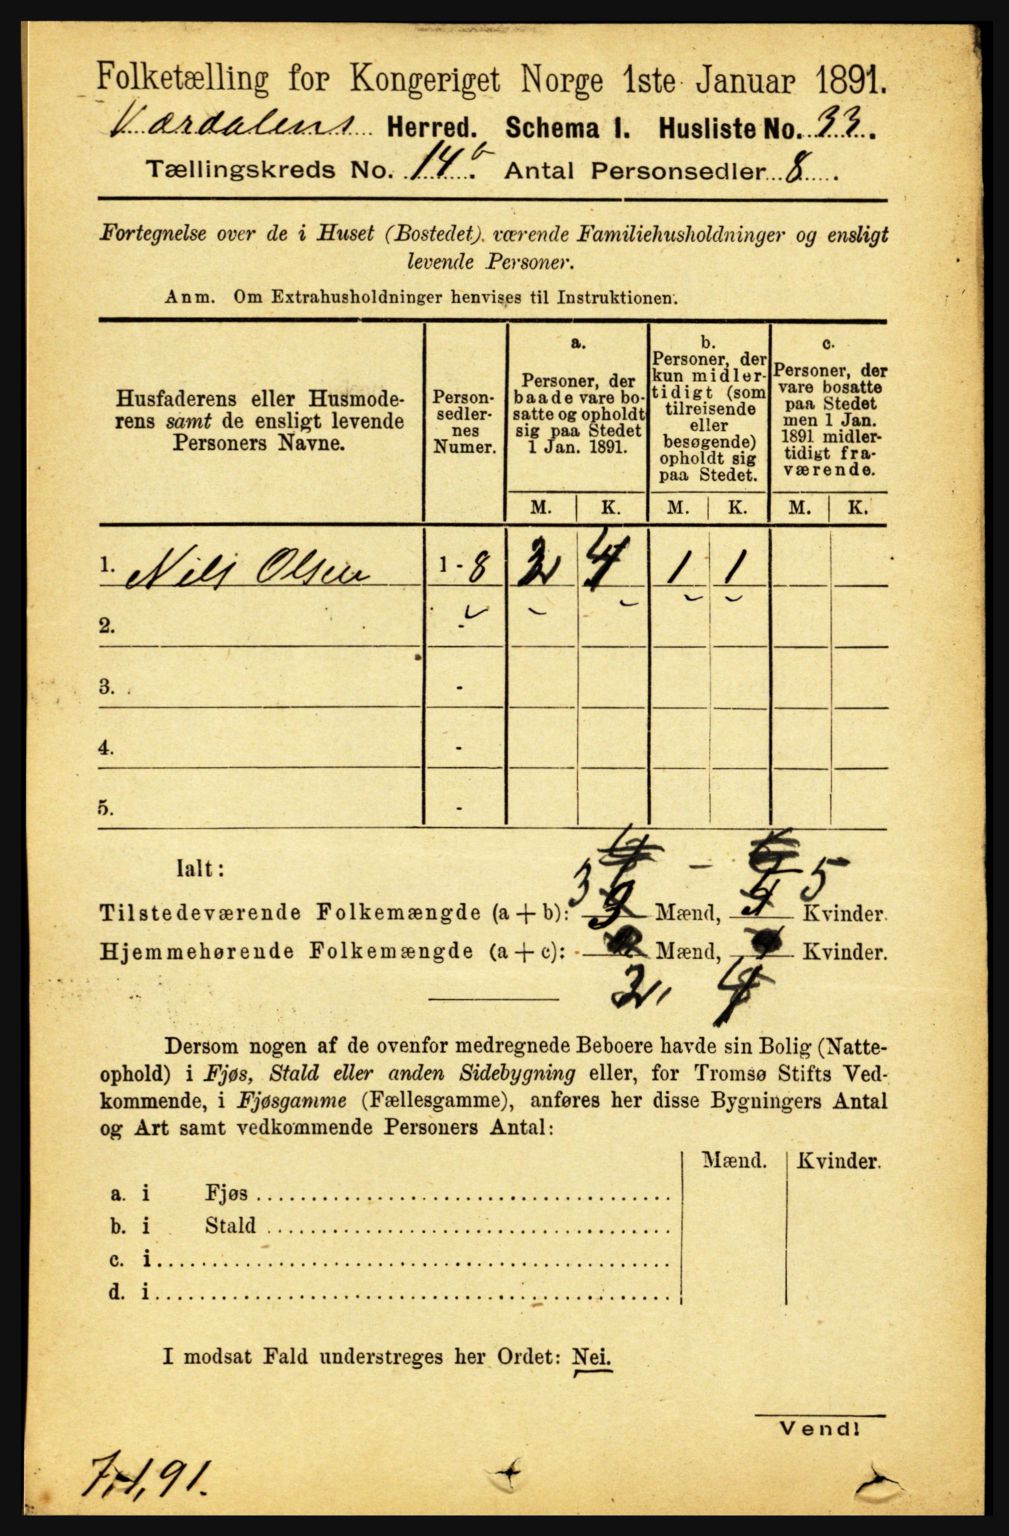 Folketælling for Kongeriget Norge 1ste Januar 1891.
Værdalens Herred. Schema I. Husliste No. 33.
Tællingskreds No. 14b. Antal Personsedler 8.
Fortegnelse over de i Huset (Bostedet) værende Familiehusholdninger og ensligt
levende Personer.
Anm. Om Extrahusholdninger henvises til Instruktionen.
Husfaderens eller Husmode-
rens samt de ensligt levende
Personers Navne.
Person-
sedler-
nes
Numer.
a.
Personer, der
baade vare bo-
satte og opholdt
sig paa Stedet
1 Jan. 1891.
b.
Personer, der
kun midler-
tidigt (som
tilreisende
eller
besøgende)
opholdt sig
paa Stedet.
c.
Personer, der
vare bosatte
paa Stedet
men 1 Jan.
1891 midler-
tidigt fra-
værende.
M. K. M. K. M. K.
1. Nils Olsen 1-8 2 4 1 1
2. -
3. -
4. -
5. -
Ialt:
3 5
Tilstedeværende Folkemængde (a + b): Mænd, Kvinder.
Hjemmehørende Folkemængde (a + c): Mænd, Kvinder.
2, 4
Dersom nogen af de ovenfor medregnede Beboere havde sin Bolig (Natte-
ophold) i Fjøs, Stald eller anden Sidebygning eller, for Tromsø Stifts Ved-
kommende, i Fjøsgamme (Fællesgamme), anføres her disse Bygningers Antal
og Art samt vedkommende Personers Antal:
Mænd. Kvinder.
a. i Fjøs
b. i Stald
c. i
d. i
I modsat Fald understreges her Ordet: Nei.
Vend!
7,1,91.